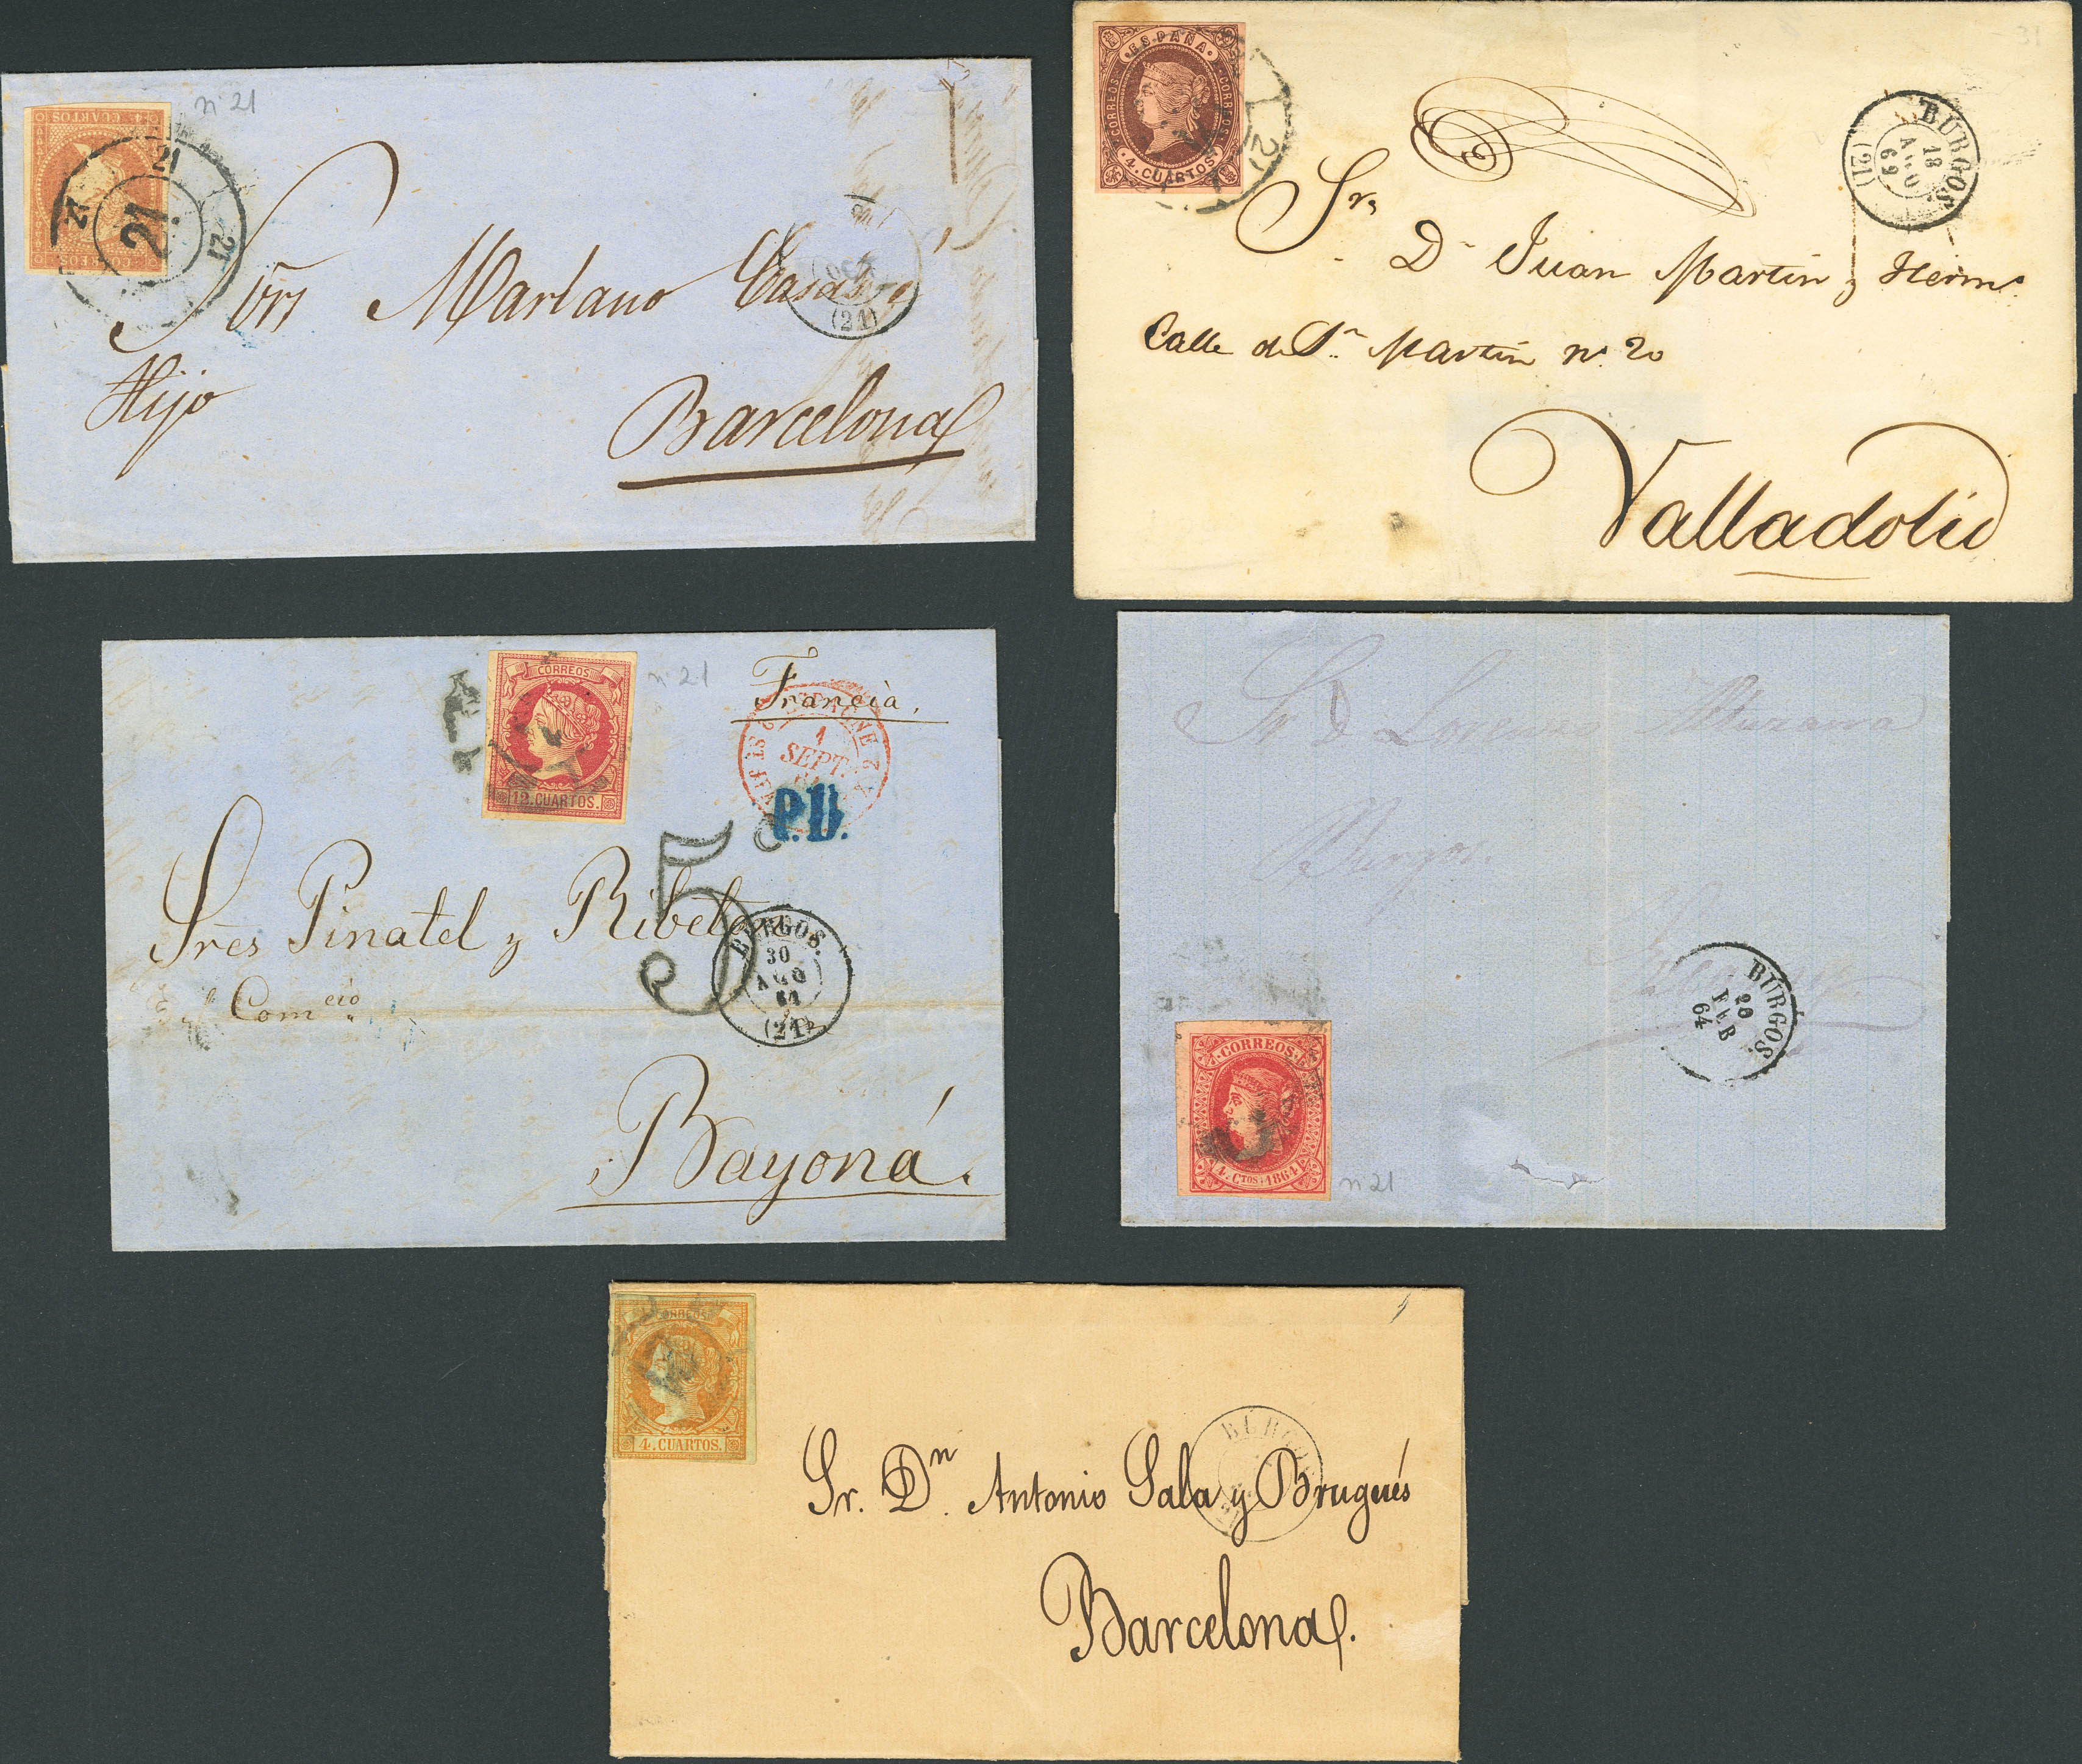 nº 21
4 CUARTOS
CORREOS
21
21
21
21
Sres Mariano Casas é
Hijo
OCT
(21)
Barcelona
ESPAÑA
CORREOS
CORREOS
4. CUARTOS
21
31
BURGOS
18
AGO
(21)
Sres
Dn Juan Martin y Hermo
Calle de Sn Martin nº 20
Valladolid
CORREOS
12. CUARTOS.
nº 21
Francia.
ESPAGNE
1
SEPT.
P.D.
5
Sres Pinatel y Ribeton
Comcio
BURGOS.
30
AGO
61
(21)
Bayona.
Sr D Lorenzo
Burgos.
BURGOS.
20
FEB
64
CORREOS
4. CTOS. 1864
nº 21
CORREOS
4. CUARTOS.
BURGOS
Sr. Dn. Antonio Sala y Brugués
Barcelona.